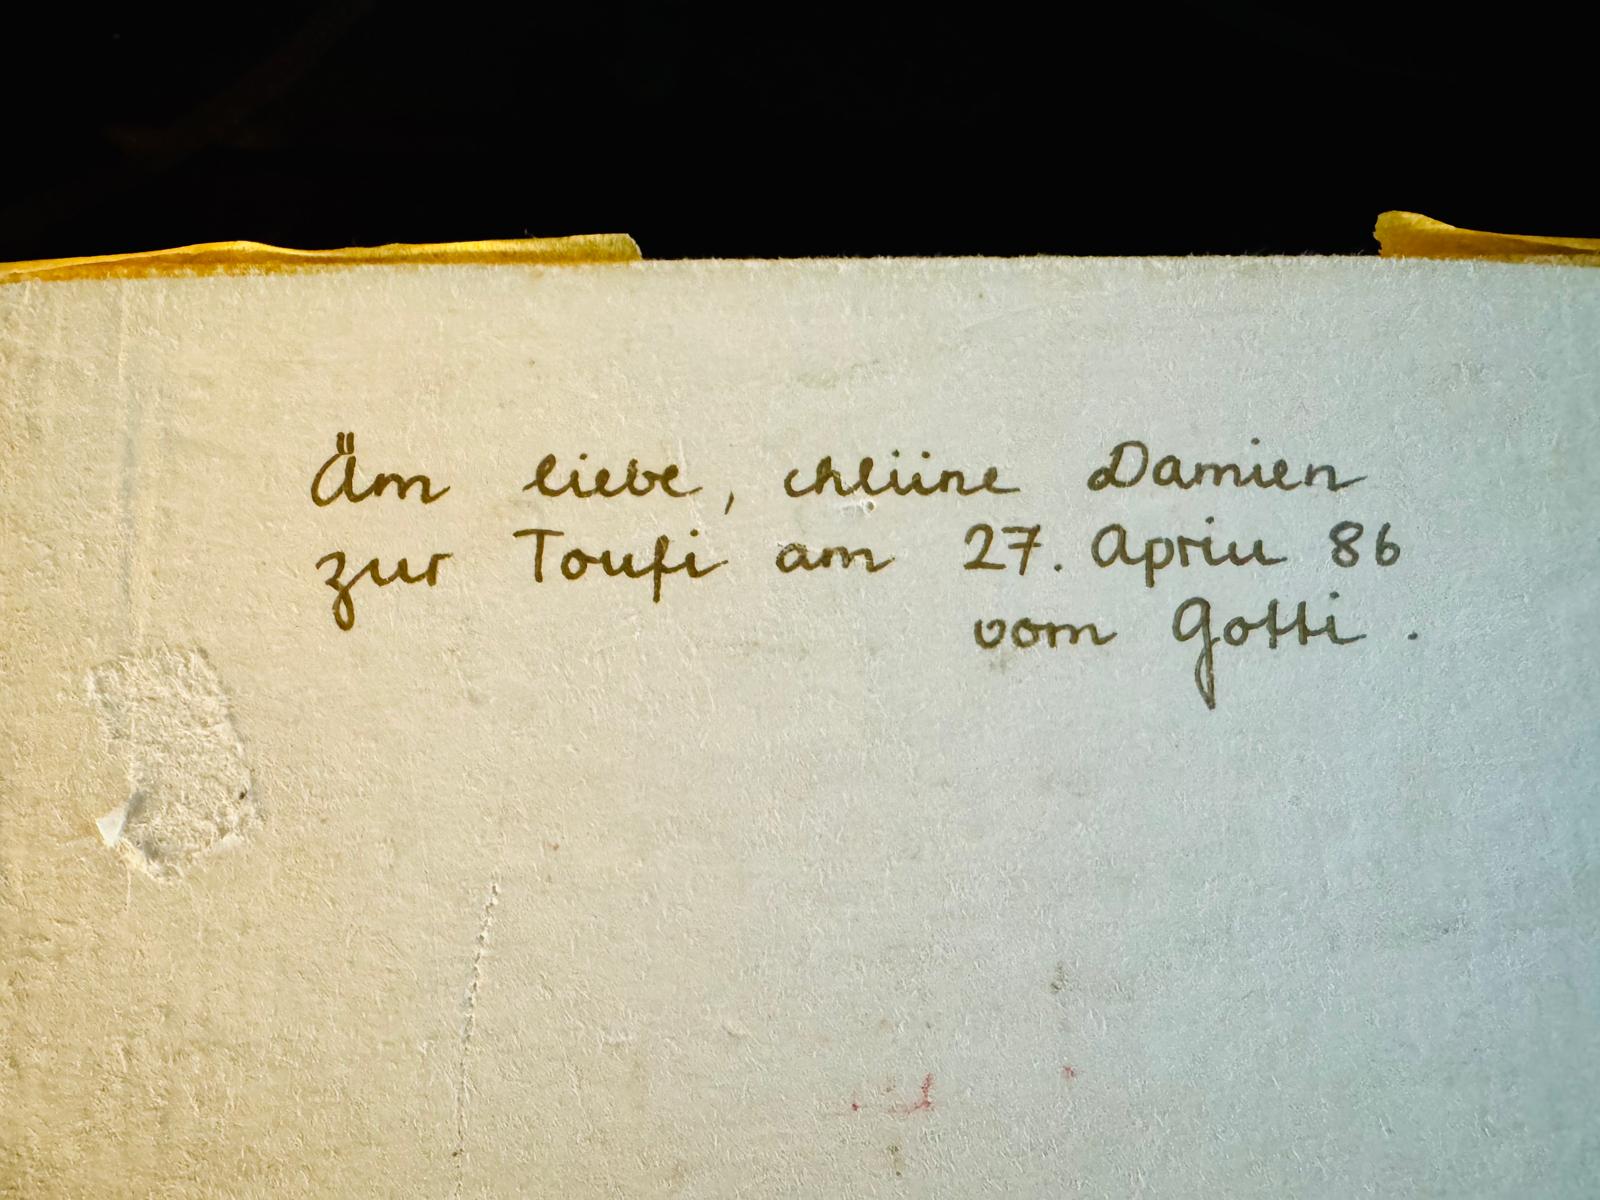 Äm liebe, chliine Damien
zur Toufi am 27. Apriu 86
vom Gotti.